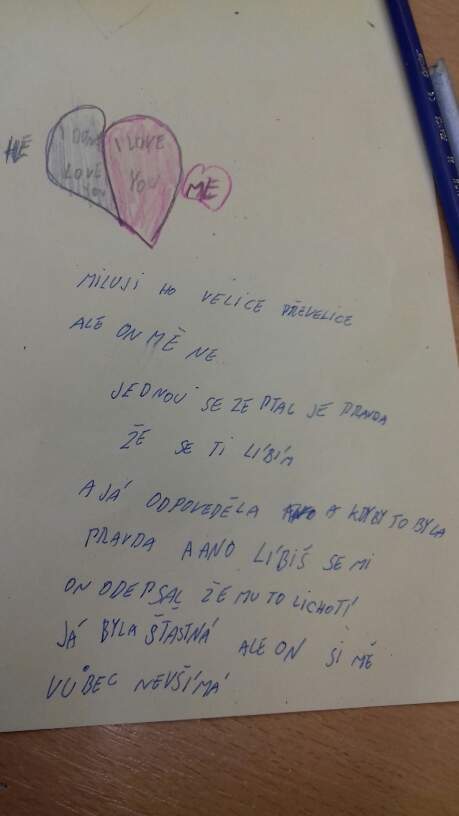 HE
I DON'T
LOVE
YOU
I LOVE
YOU
ME
MILUJI HO VELICE PŘEVELICE
ALE ON MĚ NE
JEDNOU SE ZEPTAL JE PRAVDA
ŽE SE TI LÍBÍM
A JÁ ODPOVEDĚLA A KDYBY TO BYLA
PRAVDA A ANO LÍBÍŠ SE MI
ON ODEPSAL ŽE MU TO LICHOTÍ
JÁ BYLA ŠŤASTNÁ ALE ON SI MĚ
VŮBEC NEVŠÍMÁ